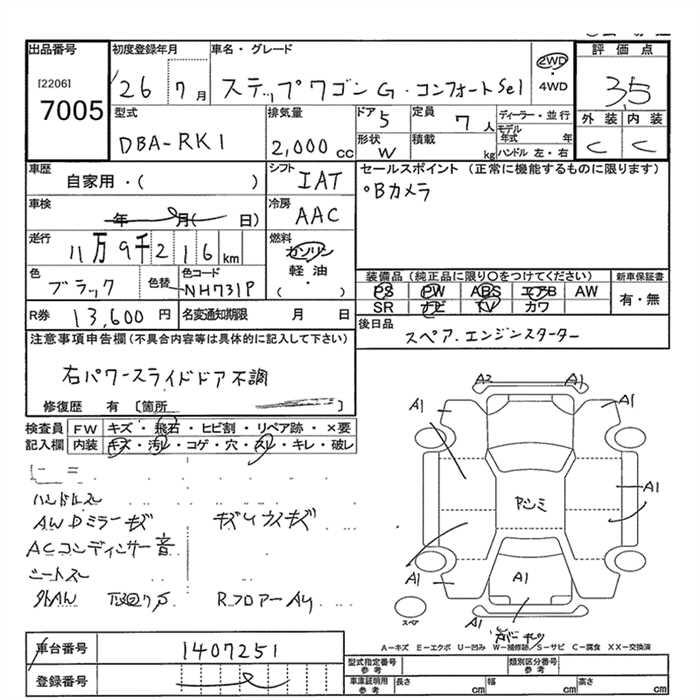 出品番号 初度登録年月 車名・グレード 評価点
[2206]
7005
'26 7月 ステップワゴン G・コンフォートSel 2WD・4WD 3.5
型式 排気量 ドア 5 定員 7人 ディーラー・並行 外装 内装
DBA-RK1 2,000cc 形状 W 積載 kg モデル年式 年 ハンドル 左・右 C C
車歴 自家用・( ) シフト IAT セールスポイント (正常に機能するものに限ります)
°Bカメラ
車検 年 月( 日) 冷房 AAC
走行 11万9千216km 燃料 ガソリン 軽油 ・( )
色 ブラック 色替 色コード NH731P
装備品 (純正品に限り○をつけてください) 新車保証書
PS PW ABS エアB AW 有・無
SR ナビ TV カワ
R券 13,600円 名変通知期限 月 日 後日品 スペア.エンジンスターター
注意事項申告欄(不具合内容等は具体的に記入して下さい)
右パワースライドドア不調
修復歴 有 〔箇所 〕
検査員記入欄 FW キズ・飛石・ヒビ割・リペア跡・×要
内装 キズ・汚レ・コゲ・穴・スレ・キレ・破レ
ハンドルスレ
AWDミラーキズ
ACコンディンサー音
シートスレ
外AW R.フロアー
A2 A1
A1 A1
A1
A1
A1
スペア
A-キズ E-エクボ U-凹み W-補修跡/S-サビ C-腐食 XX-交換済
車台番号 1407251 型式指定番号 参考 類別区分番号 参考
登録番号 車庫証明用 参考 長さ cm 幅 cm 高さ cm